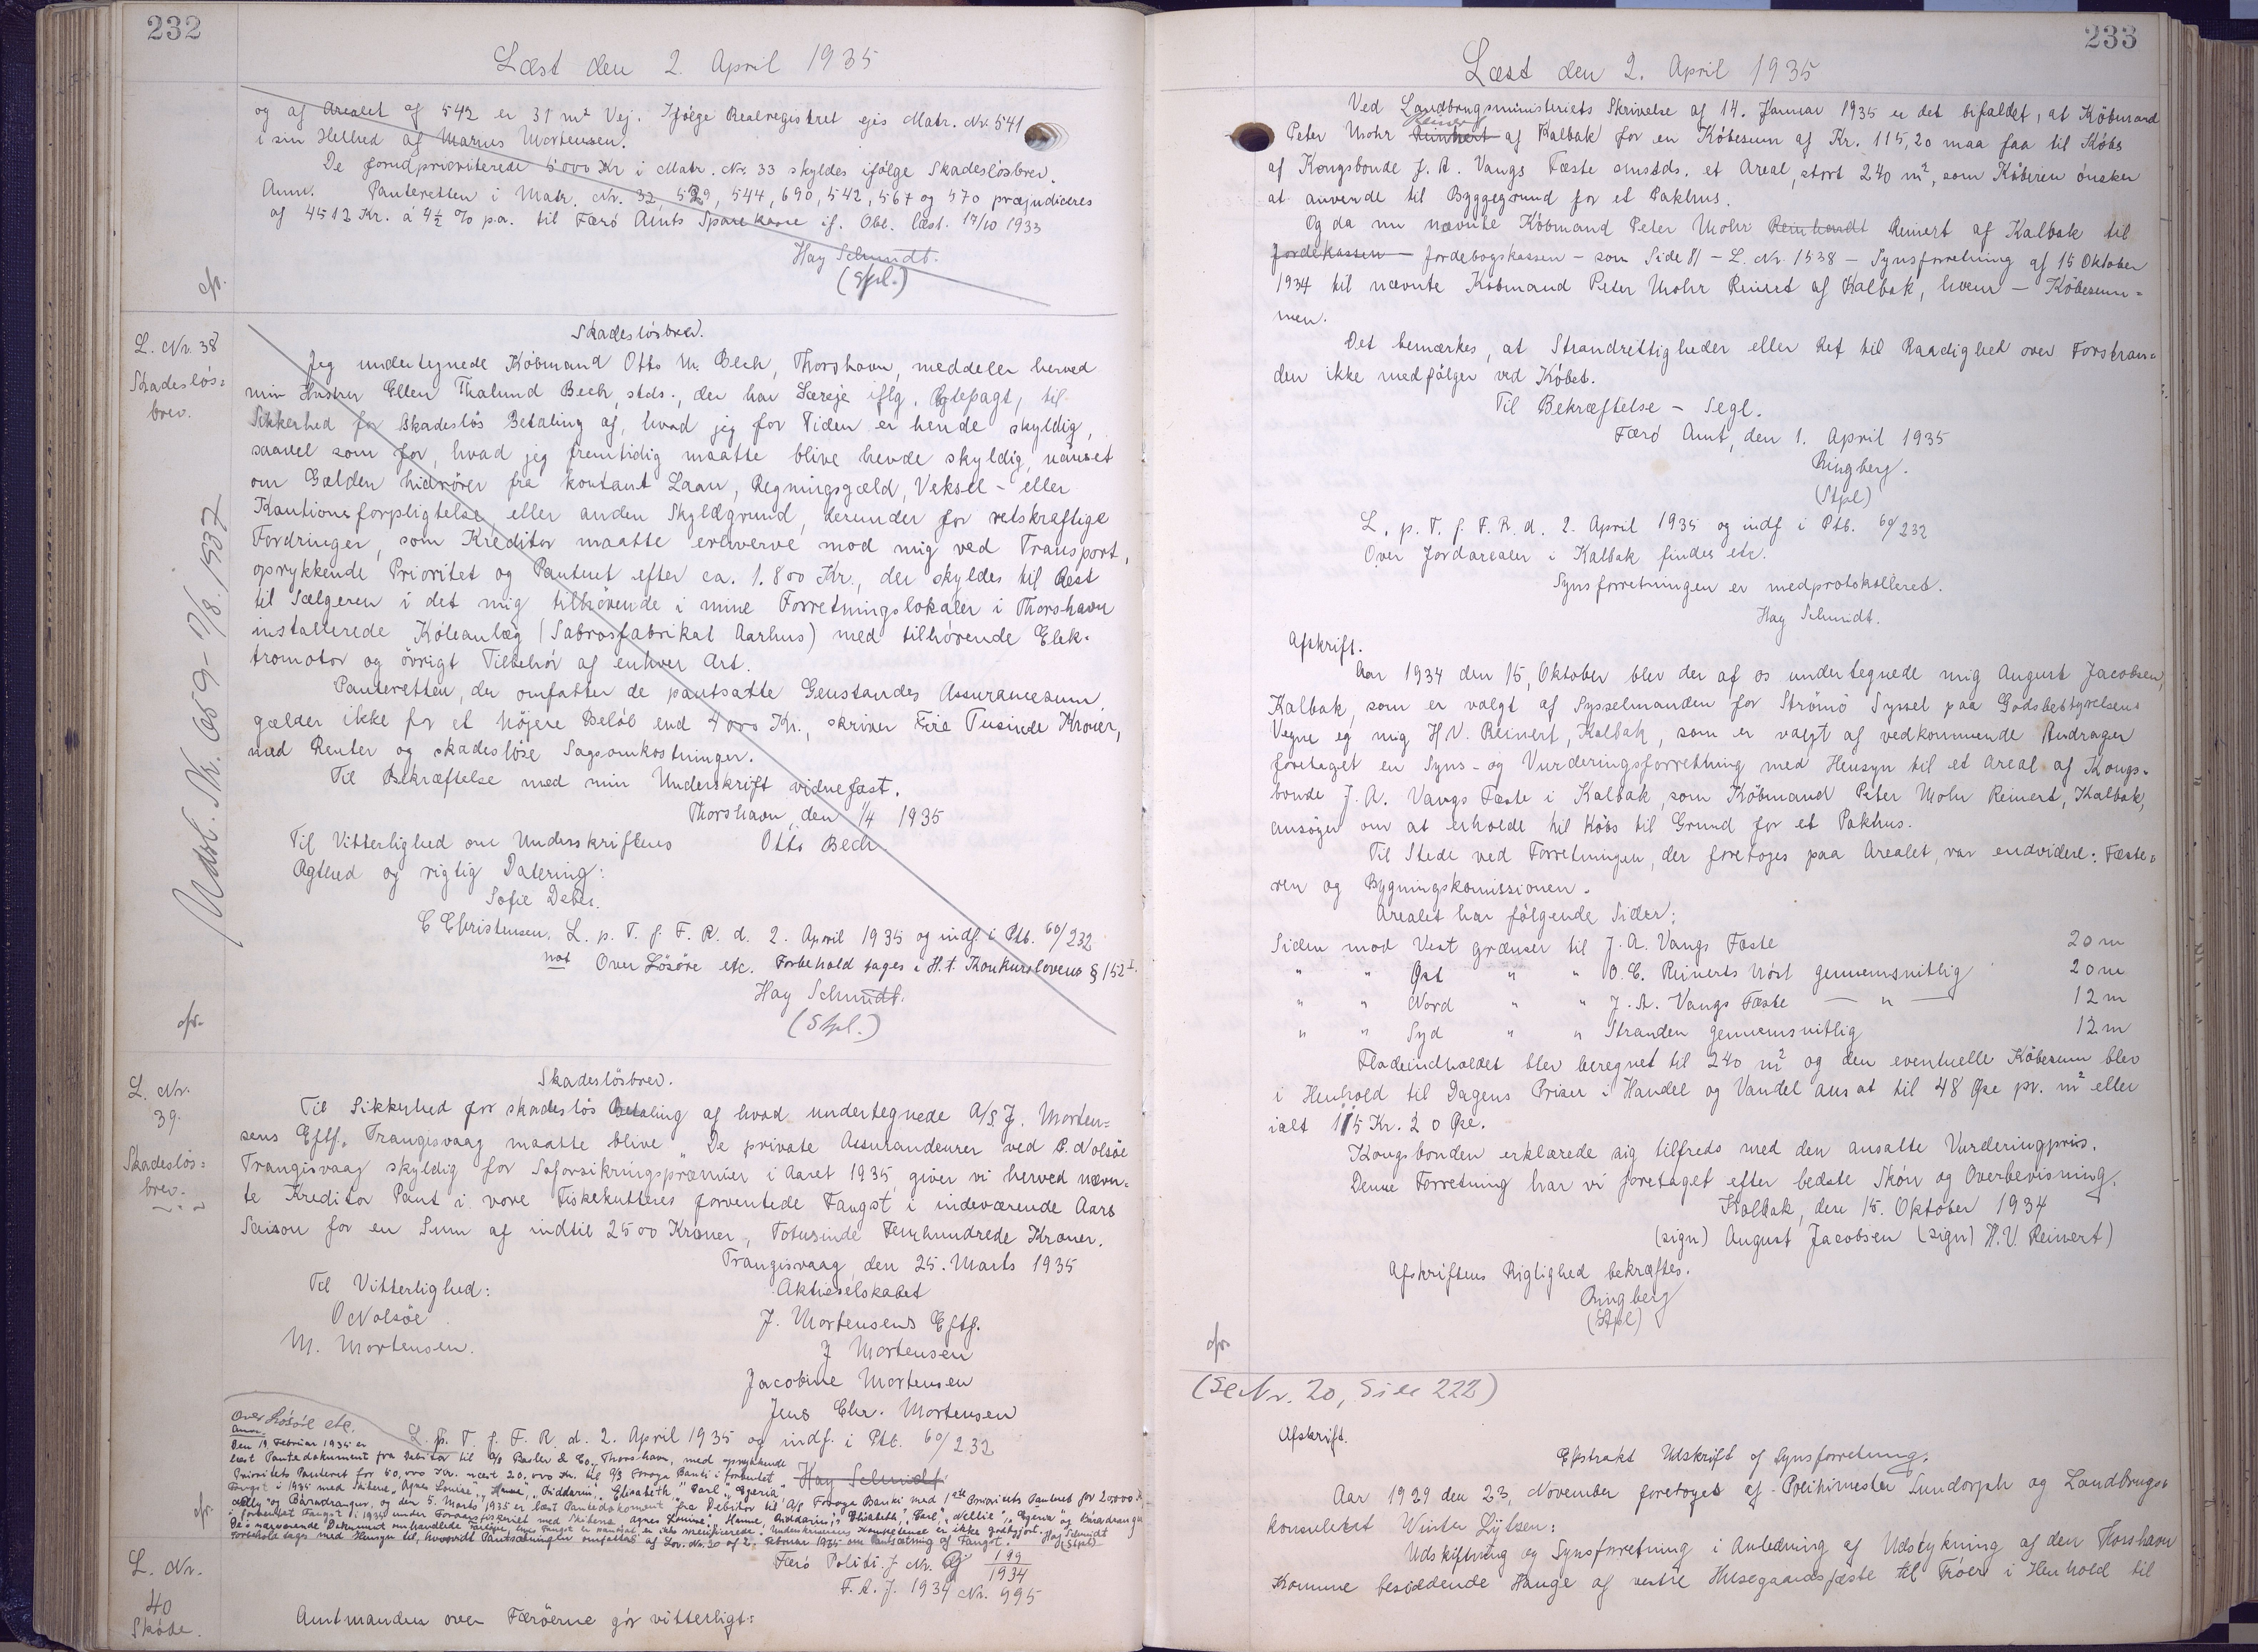 232
Læst den 2. April 1935
og af Arealet af 542 er 31 m² Vej. Ifølge Realregistret ejes Matr. Nr. 541
i sin Helhed af Marius Mortensen.
De forudprioriterede 5000 Kr i Matr. Nr. 33 skyldes ifølge Skadesløsbrev.
Anm. Panteretten i Matr. Nr. 32, 539, 544, 690, 542, 567 og 570 præjudiceres
af 4512 Kr. á 4½ % p.a. til Færö Amts Sparekasse if. Obl. læst. 17/10 1933
Hay Schmidt.
(Stpl.)
cfr.
L. Nr. 38
Skadeslös=
brev.
Udsl. Nr. 659 - 7/8. 1937
Skadeslösbrev.
Jeg undertegnede Köbmand Otto M. Bech, Thorshavn, meddeler herved
min Hustru Ellen Thalund Bech, stds., der har Særeje iflg. Ægtepagt, til
Sikkerhed for skadeslös Betaling af, hvad jeg for Tiden er hende skyldig,
saavel som for, hvad jeg fremtidig maatte blive hende skyldig, uanset
om Gælden hidrörer fra kontant Laan, Regningsgæld, Veksel - eller
Kautionsforpligtelse, eller anden Skyldgrund, derunder for retskraftige
Fordringer, som Kreditor maatte erhverve mod mig ved Transport,
oprykkende Prioritet og Panteret efter ca. 1.800 Kr., der skyldes til Rest
til Sælgeren i det mig tilhörende i mine Forretningslokaler i Thorshavn
installerede Köleanlæg (Sabrosfabrikat Aarhus) med tilhörende Elek-
tromotor og övrigt Tilbehör af enhver Art.
Panteretten, der omfatter de pantsatte Genstandes Assurancesum,
gælder ikke for et höjere Belöb end 4000 Kr., skriver Fire Tusinde Kroner,
med Renter og skadeslöse Sagsomkostninger.
Til Bekræftelse med min Underskrift vidnefast.
Thorshavn, den 1/4 1935
Til Vitterlighed om Underskriftens Otto Bech.
Ægthed og rigtig Datering:
Sofie Debes.
C Christensen. L. p. T. f. F. R. d. 2. April 1935 og indf. i Ptb. 60/232
not Over Lösöre etc. Forbehold tages i H. t. Konkurslovens § 152 I.
Hay Schmidt.
(Stpl.)
cfr.
L. Nr.
39.
Skadeslös=
brev.
Skadeslösbrev.
Til Sikkerhed for skadeslös Betaling af hvad undertegnede A/S J. Morten=
sens Eftf. Trangisvaag maatte blive "De private Assurandeurer ved P. Nolsöe
Trangisvaag skyldig for Söforsikringspræmier i Aaret 1935 giver vi herved nævn=
te Kreditor Pant i vore Fiskekutteres forventede Fangst i indeværende Aars
Saison for en Sum af indtil 2500 Kroner, Totusinde Femhundrede Kroner.
Trangisvaag den 25. Marts 1935
Til Vitterlighed: Aktieselskabet
O Nolsöe J. Mortensens Eftf.
M. Mortensen. J Mortensen
Jacobine Mortensen
Jens Chr. Mortensen
Over Lösöre etc.
L. p. T. f. F. R. d. 2. April 1935 og indf. i Ptb. 60/232
Anm.
Den 19 Februar 1935 er
læst Pantedokument fra Debitor til A/S Bacler & Co, Thorshavn, med oprykkende
Prioritets Panteret for 60,000 Kr. næst 20,000 Kr. til A/S Föroya Banki i forventet Hay Schmidt
Fangst i 1935 med Skibene "Agnes Louise", "Hanne", "Riddarin", "Elisabeth" "Carl", "Egeria"
"Nelly" og Báradrangur, og den 5. Marts 1935 er læst Pantedokument fra Debitor til A/S Föroya Banki med 1ste Prioritets Panteret for 20000 Kr.
i forventet Fangst i 1935 under Foraarsfiskeriet med Skibene "Agnes Louise", "Hanne", "Riddarin", "Elisabeth", "Carl", "Nellie", "Egeria" og Báradrangur
De i nærværende Dokument omhandlede Fartöjer, hvis Fangst er pantsat, er ikke specificerede. Underskrivernes Kompetence er ikke godtgjort. Hay Schmidt
Forbehold tages med Hensyn til, hvorvidt Pantsætningen omfattes af Lov. Nr. 30 af 2. Februar 1935 om Pantsætning af Fangst. (Stpl)
cfr.
Færö Politi. J Nr. G 199/1934
F. A. J. 1934 Nr. 995
L. Nr.
40
Skøde.
Amtmanden over Færöerne gör vitterligt:
233
Læst den 2. April 1935
Ved Landbrugsministeriets Skrivelse af 14. Januar 1935 er det bifaldet, at Köbmand
Reinert
Peter Mohr Reinhert af Kalbak for en Köbesum af Kr. 115,20 maa faa til Köbs
af Kongsbonde J. A. Vangs Fæste smstds. et Areal, stort 240 m², som Köberen önsker
at anvende til Byggegrund for et Pakhus.
Og da nu nævnte Köbmand Peter Mohr Reinhardt Reinert af Kalbak til
Jordekassen - Jordebogskassen - som Side 81 - L. Nr. 1538 - Synsforretning af 15 Oktober
1934 til nævnte Köbmand Peter Mohr Reinert af Kalbak, hvem - Köbesum=
men.
Det bemærkes, at Strandrettigheder eller Ret til Raadighed over Forstran=
den ikke medfölger ved Köbet.
Til Bekræftelse - Segl.
Færö Amt, den 1. April 1935
Ringberg.
(Stpl)
L. p. T. f. F. R. d. 2. April 1935 og indf i Ptb. 60/232
Over Jordarealer i Kalbak findes etc.
Synsforretningen er medprotokolleret.
Hay Schmidt.
Afskrift.
Aar 1934 den 15, Oktober blev der af os undertegnede mig August Jacobsen,
Kalbak, som er valgt af Sysselmanden for Strömö Syssel paa Godsbestyrelsens
Vegne og mig H V. Reinert, Kalbak, som er valgt af vedkommende Andrager
foretaget en Syns- og Vurderingsforretning med Hensyn til et Areal af Kongs-
bonde J. A. Vangs Fæste i Kalbak, som Köbmand Peter Mohr Reinert, Kalbak,
ansöger om at erholde til Köbs til Grund for et Pakhus.
Til Stede ved Forretningen, der foretoges paa Arealet, var endvidere: Fæste=
ren og Bygningskomissionen.
Arealet har fölgende Sider:
Siden mod Vest grænser til J. A. Vangs Fæste 20 m
" " Øst " " O. C. Reinerts Nöst gennemsnitlig 20 m
" " Nord " " J. A. Vangs Fæste — " — 12 m
" " Syd " " Stranden gennemsnitlig 12 m
Fladeindholdet blev beregnet til 240 m² og den eventuelle Köbesum blev
i Henhold til Dagens Priser i Handel og Vandel ansat til 48 Øre pr. m² eller
ialt 115 Kr. 20 Øre.
Kongsbonden erklærede sig tilfreds med den ansatte Vurderingpris.
Denne Forretning har vi foretaget efter bedste Skön og Overbevisning.
Kalbak, den 15. Oktober 1934
(sign) August Jacobsen (sign) H. V. Reinert)
Afskriftens Rigtighed bekræftes.
Ringberg
(Stpl)
cfr.
(Se Nr. 20, Side 222)
Afskrift.
Ekstrakt Udskrift af Synsforretning.
Aar 1929 den 23, November foretoges af Politimester Sundorph og Landbrugs=
konsulent Winter Lützen:
Udskiftning og Synsforretning i Anledning af Udstykning af den Thorshavn
Komune besiddende Hauge af vestre Husegaardsfæste til Tröer i Henhold til